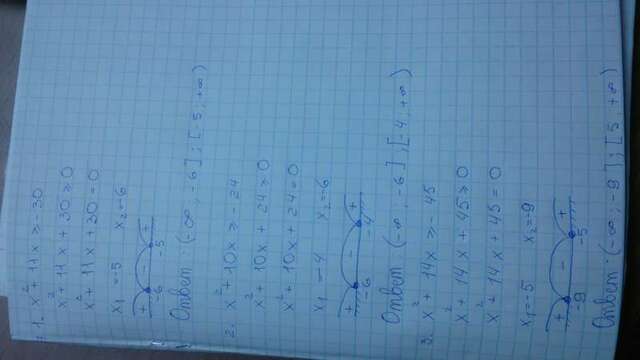 1. x² + 11x ≥ -30
x² + 11x + 30 ≥ 0
x² + 11x + 30 = 0
x₁ = -5 x₂ = -6
+ - +
-6 -5
Ответ: (-∞; -6]; [-5; +∞)
2. x² + 10x ≥ -24
x² + 10x + 24 ≥ 0
x² + 10x + 24 = 0
x₁ = -4 x₂ = -6
+ - +
-6 -4
Ответ: (-∞; -6]; [-4; +∞)
3. x² + 14x ≥ -45
x² + 14x + 45 ≥ 0
x² + 14x + 45 = 0
x₁ = -5 x₂ = -9
+ - +
-9 -5
Ответ: (-∞; -9]; [5; +∞)